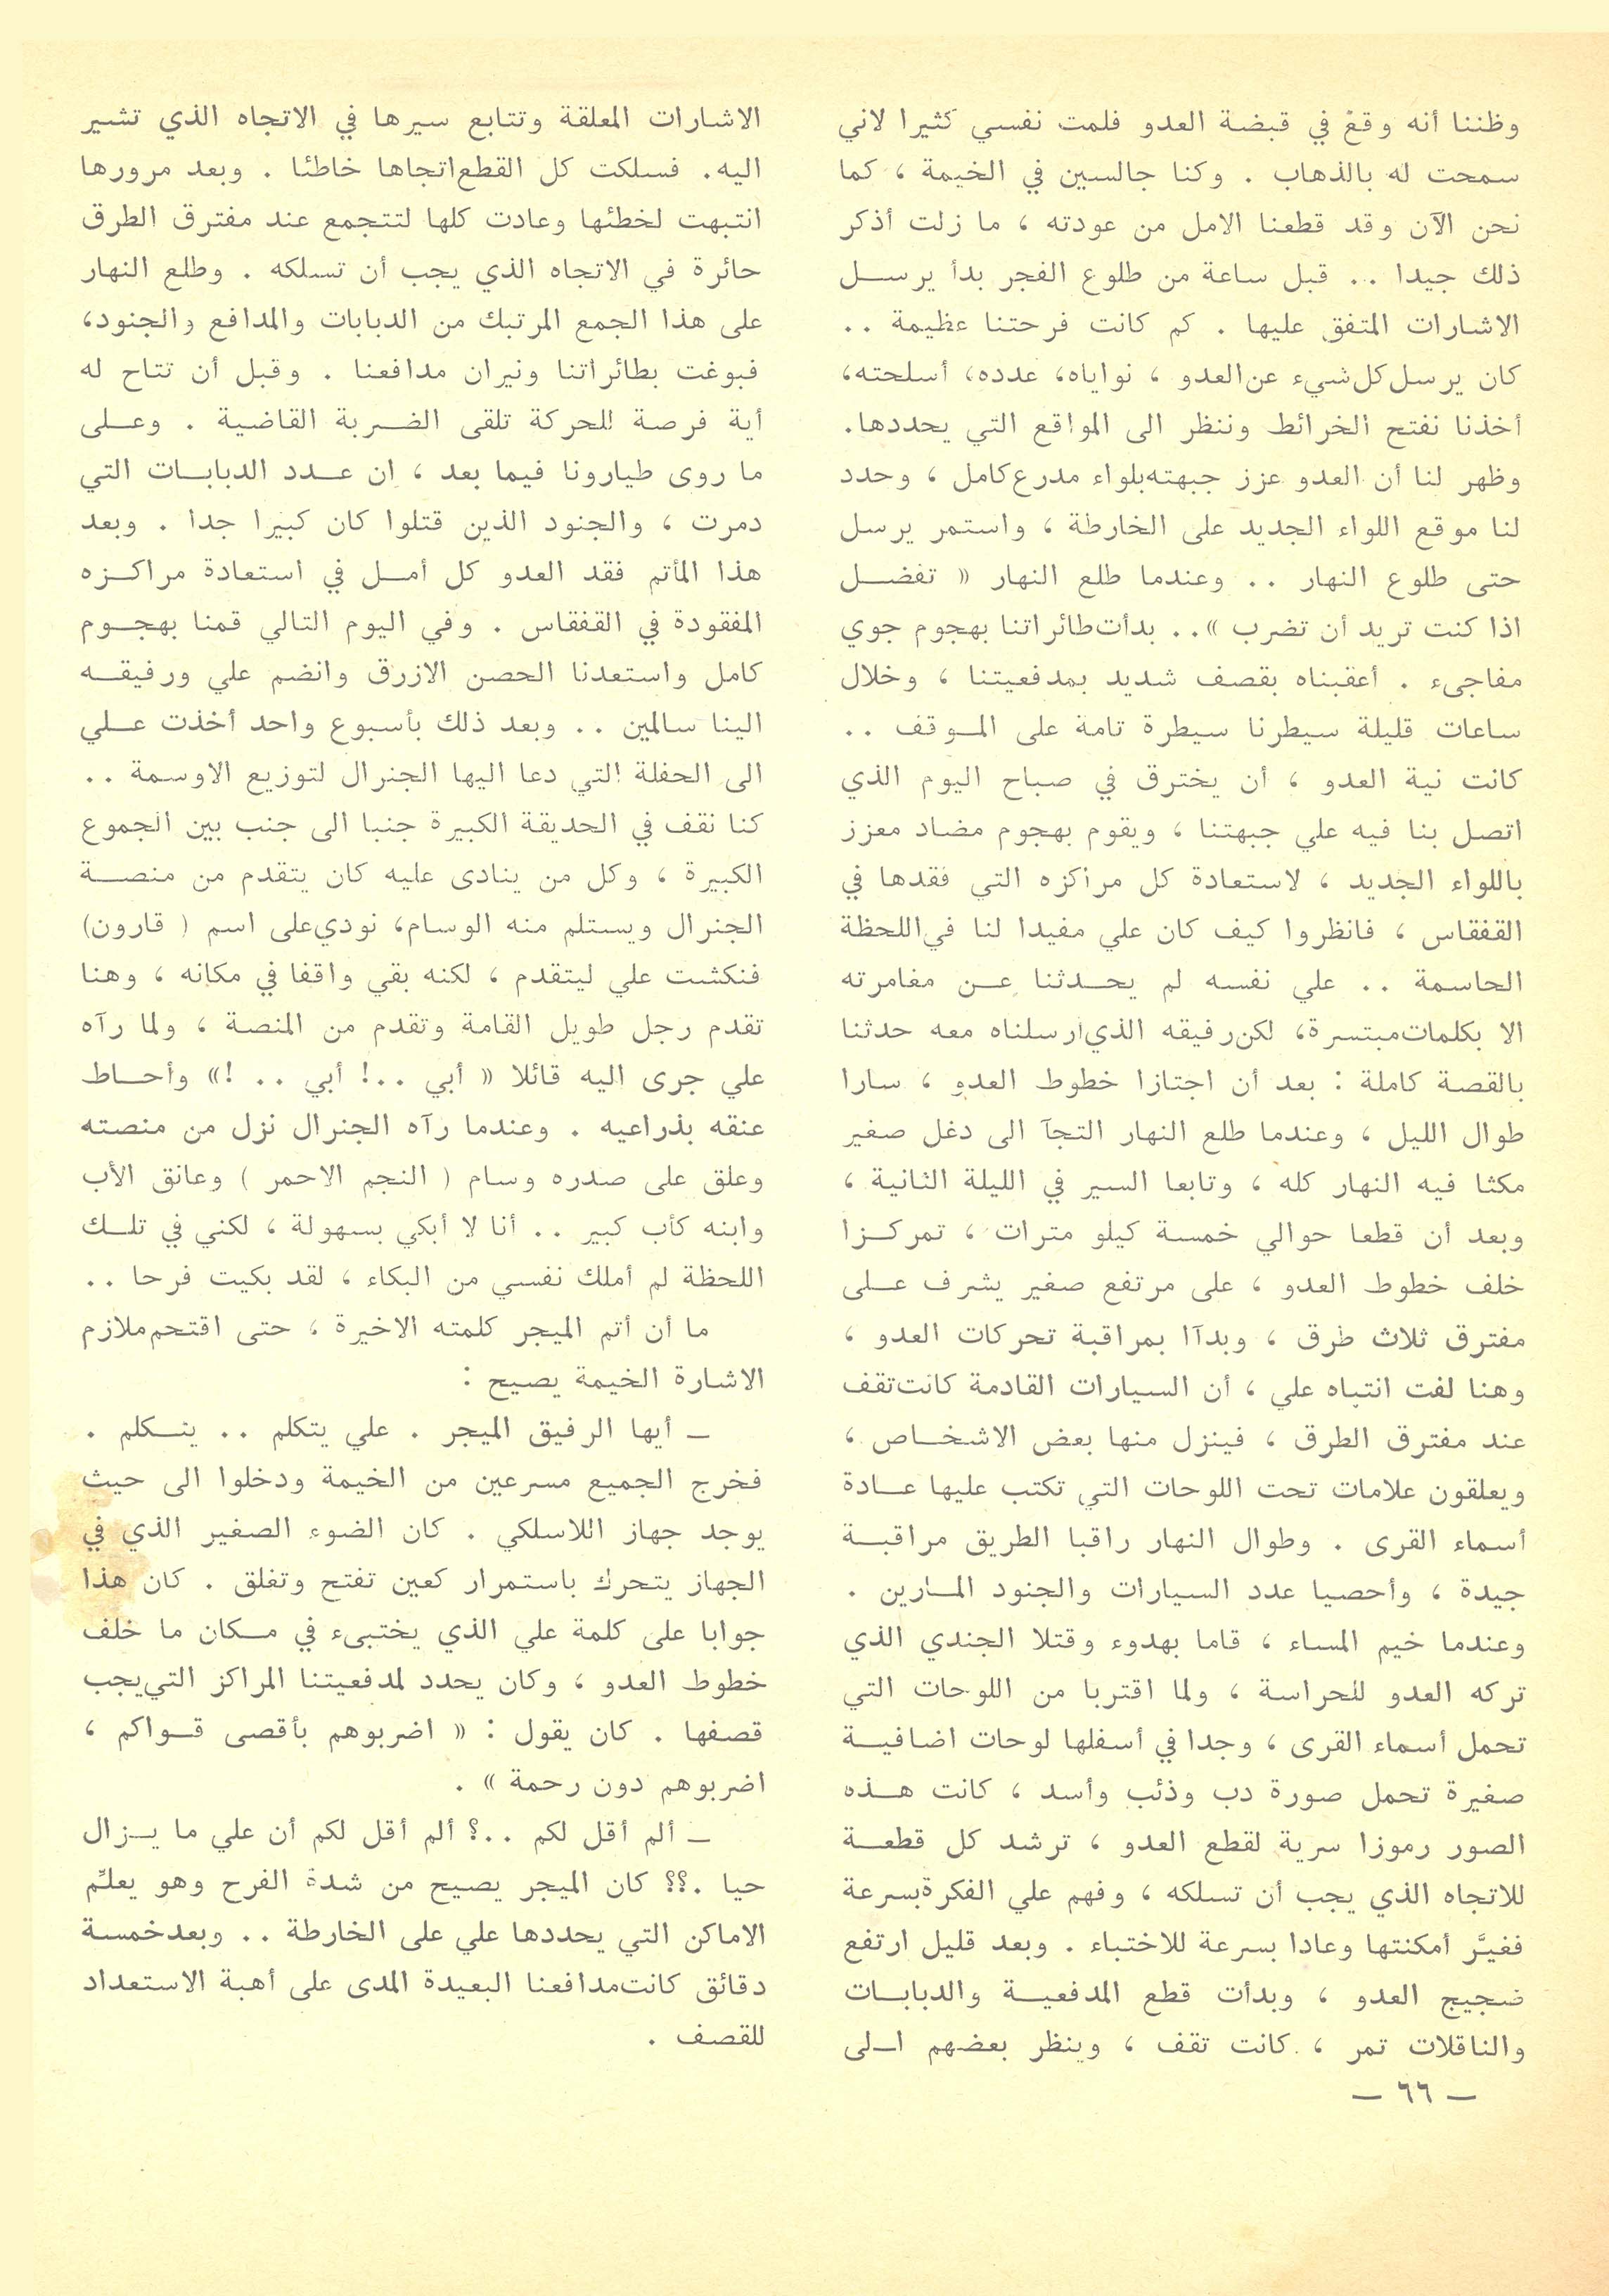 وظننا أنه وقع في قبضة العدو فلمت نفسي كثيرا لاني
سمحت له بالذهاب . وكنا جالسين في الخيمة ، كما
نحن الآن وقد قطعنا الامل من عودته ، ما زلت أذكر
ذلك جيدا .. قبل ساعة من طلوع الفجر بدأ يرسل
الاشارات المتفق عليها . كم كانت فرحتنا عظيمة ..
كان يرسل كل شيء عن العدو ، نواياه، عدده، أسلحته،
أخذنا نفتح الخرائط وننظر الى المواقع التي يحددها.
وظهر لنا أن العدو عزز جبهته بلواء مدرع كامل ، وحدد
لنا موقع اللواء الجديد على الخارطة ، واستمر يرسل
حتى طلوع النهار .. وعندما طلع النهار « تفضل
اذا كنت تريد أن تضرب ».. بدأت طائراتنا بهجوم جوي
مفاجىء . أعقبناه بقصف شديد بمدفعيتنا ، وخلال
ساعات قليلة سيطرنا سيطرة تامة على الموقف ..
كانت نية العدو ، أن يخترق في صباح اليوم الذي
اتصل بنا فيه علي جبهتنا ، ويقوم بهجوم مضاد معزز
باللواء الجديد ، لاستعادة كل مراكزه التي فقدها في
القفقاس ، فانظروا كيف كان علي مفيدا لنا في اللحظة
الحاسمة .. علي نفسه لم يحدثنا عن مغامرته
الا بكلمات مبتسرة، لكن رفيقه الذي ارسلناه معه حدثنا
بالقصة كاملة : بعد أن اجتازا خطوط العدو ، سارا
طوال الليل ، وعندما طلع النهار التجآ الى دغل صغير
مكثا فيه النهار كله ، وتابعا السير في الليلة الثانية ،
وبعد أن قطعا حوالي خمسة كيلو مترات ، تمركزا
خلف خطوط العدو ، على مرتفع صغير يشرف على
مفترق ثلاث طرق ، وبدآا بمراقبة تحركات العدو ،
وهنا لفت انتباه علي ، أن السيارات القادمة كانت تقف
عند مفترق الطرق ، فينزل منها بعض الاشخاص ،
ويعلقون علامات تحت اللوحات التي تكتب عليها عادة
أسماء القرى . وطوال النهار راقبا الطريق مراقبة
جيدة ، وأحصيا عدد السيارات والجنود المارين .
وعندما خيم المساء ، قاما بهدوء وقتلا الجندي الذي
تركه العدو للحراسة ، ولما اقتربا من اللوحات التي
تحمل أسماء القرى ، وجدا في أسفلها لوحات اضافية
صغيرة تحمل صورة دب وذئب وأسد ، كانت هذه
الصور رموزا سرية لقطع العدو ، ترشد كل قطعة
للاتجاه الذي يجب أن تسلكه ، وفهم علي الفكرة بسرعة
فغيَّر أمكنتها وعادا بسرعة للاختباء . وبعد قليل ارتفع
ضجيج العدو ، وبدأت قطع المدفعية والدبابات
والناقلات تمر ، كانت تقف ، وينظر بعضهم الى
الاشارات المعلقة وتتابع سيرها في الاتجاه الذي تشير
اليه. فسلكت كل القطع اتجاها خاطئا . وبعد مرورها
انتبهت لخطئها وعادت كلها لتتجمع عند مفترق الطرق
حائرة في الاتجاه الذي يجب أن تسلكه . وطلع النهار
على هذا الجمع المرتبك من الدبابات والمدافع والجنود،
فبوغت بطائراتنا ونيران مدافعنا . وقبل أن تتاح له
أية فرصة للحركة تلقى الضربة القاضية . وعلى
ما روى طيارونا فيما بعد ، ان عدد الدبابات التي
دمرت ، والجنود الذين قتلوا كان كبيرا جدا . وبعد
هذا المأتم فقد العدو كل أمل في استعادة مراكزه
المفقودة في القفقاس . وفي اليوم التالي قمنا بهجوم
كامل واستعدنا الحصن الازرق وانضم علي ورفيقه
الينا سالمين .. وبعد ذلك بأسبوع واحد أخذت علي
الى الحفلة التي دعا اليها الجنرال لتوزيع الاوسمة ..
كنا نقف في الحديقة الكبيرة جنبا الى جنب بين الجموع
الكبيرة ، وكل من ينادى عليه كان يتقدم من منصة
الجنرال ويستلم منه الوسام، نودي على اسم ( قارون)
فنكشت علي ليتقدم ، لكنه بقي واقفا في مكانه ، وهنا
تقدم رجل طويل القامة وتقدم من المنصة ، ولما رآه
علي جرى اليه قائلا « أبي ..! أبي .. !» وأحاط
عنقه بذراعيه . وعندما رآه الجنرال نزل من منصته
وعلق على صدره وسام ( النجم الاحمر ) وعانق الأب
وابنه كأب كبير .. أنا لا أبكي بسهولة ، لكني في تلك
اللحظة لم أملك نفسي من البكاء ، لقد بكيت فرحا ..
ما أن أتم الميجر كلمته الاخيرة ، حتى اقتحم ملازم
الاشارة الخيمة يصيح :
ــ أيها الرفيق الميجر . علي يتكلم .. يتكلم .
فخرج الجميع مسرعين من الخيمة ودخلوا الى حيث
يوجد جهاز اللاسلكي . كان الضوء الصغير الذي في
الجهاز يتحرك باستمرار كعين تفتح وتغلق . كان هذا
جوابا على كلمة علي الذي يختبىء في مكان ما خلف
خطوط العدو ، وكان يحدد لمدفعيتنا المراكز التي يجب
قصفها . كان يقول : « اضربوهم بأقصى قواكم ،
اضربوهم دون رحمة » .
ــ ألم أقل لكم ..؟ ألم أقل لكم أن علي ما يزال
حيا .؟؟ كان الميجر يصيح من شدة الفرح وهو يعلِّم
الاماكن التي يحددها علي على الخارطة .. وبعد خمسة
دقائق كانت مدافعنا البعيدة المدى على أهبة الاستعداد
للقصف .
ــ ٦٦ ــ